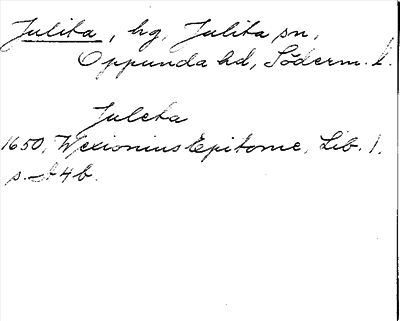 Julita, hg, Julita sn,
Oppunda hd, Söderm. l.
Juleta
1650, Wexionius Epitome, Lib. 1,
s. 4b.